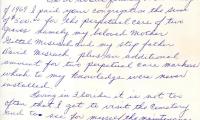 of 1969 I paid your congregation the sum
of $ for the perpetual care of two
graves namely my beloved Mother
Gottel Meserick and my step father
David Meserick plus an additional
amount for two perpetual care markers
which to my knowledge were never
installed.
Living in Florida it is not too
often that I get to visit the Cemetery
and to see for myself the maintenance